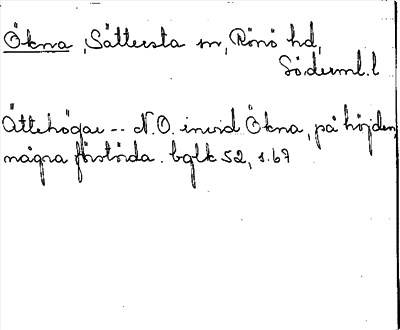 Ökna, Sättersta sn, Rönö hd,
Söderml. l
Ättehögar -- N.O. invid Ökna, på höjden,
några förstörda. bglk 52, s. 67